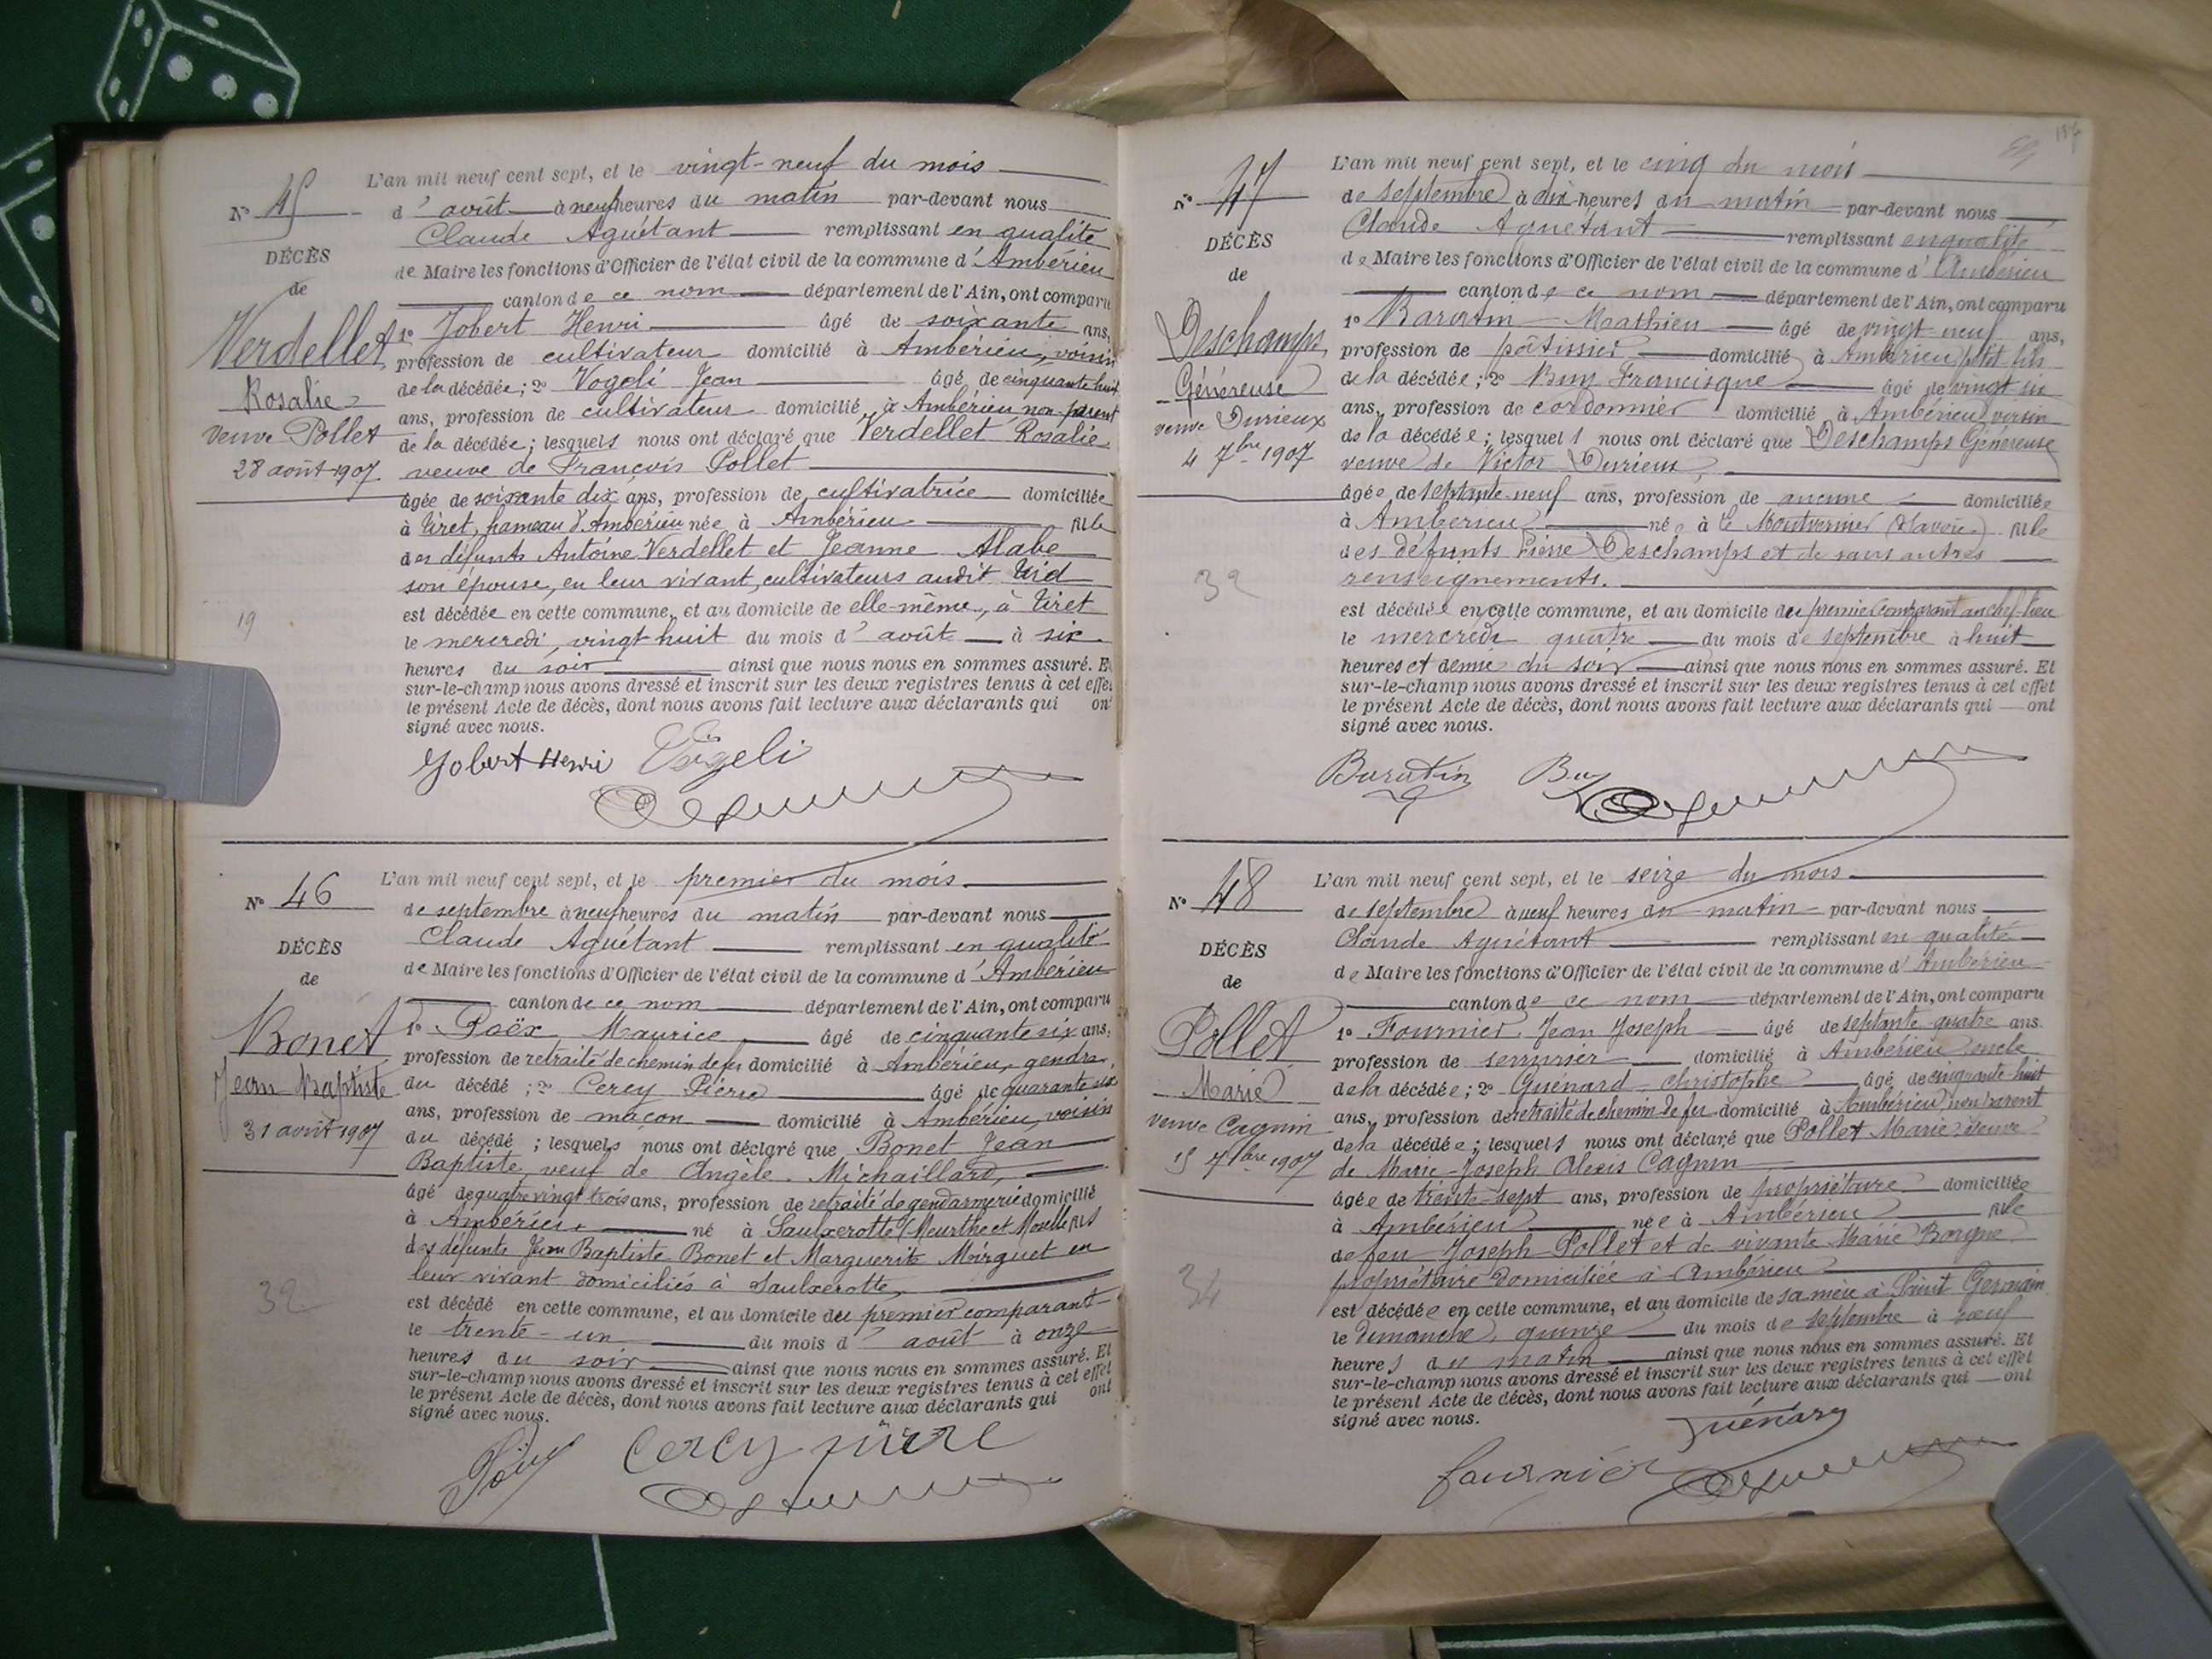 L'an mil neuf cent sept, et le vingt-neuf du mois
N° 45
d'août à neuf heures du matin par-devant nous
Claude Aguétant remplissant en qualité
DÉCÈS
de
de Maire les fonctions d'Officier de l'état civil de la commune d'Ambérieu
canton de ce nom département de l'Ain, ont comparu
Verdellet
Rosalie
veuve Pollet
28 août 1907
1° Jobert Henri âgé de soixante ans,
profession de cultivateur domicilié à Ambérieu, voisin
de la décédée; 2° Vogeli Jean âgé de cinquante huit
ans, profession de cultivateur domicilié à Ambérieu non parent
de la décédée; lesquels nous ont déclaré que Verdellet Rosalie
veuve de François Pollet
âgée de soixante dix ans, profession de cultivatrice domiciliée
à Tiret, hameau d'Ambérieu née à Ambérieu fille
des défunts Antoine Verdellet et Jeanne Alabe
son épouse, en leur vivant, cultivateurs audit
est décédée en cette commune, et au domicile de elle-même, à Tiret
19
le mercredi, vingt huit du mois d'août à six
heures du soir ainsi que nous nous en sommes assuré. Et
sur-le-champ nous avons dressé et inscrit sur les deux registres tenus à cet effet
le présent Acte de décès, dont nous avons fait lecture aux déclarants qui ont
signé avec nous.
Jobert Henri Vogeli
L'an mil neuf cent sept, et le premier du mois
N° 46
de septembre à neuf heures du matin par-devant nous
Claude Aguétant remplissant en qualité
DÉCÈS
de
de Maire les fonctions d'Officier de l'état civil de la commune d'Ambérieu
canton de ce nom département de l'Ain, ont comparu
Bonet
Jean Baptiste
31 août 1907
1° Poëx Maurice âgé de cinquante six ans,
profession de retraité de chemin de fer domicilié à Ambérieu, gendre
du décédé; 2° Cercy Pierre âgé de quarante six
ans, profession de maçon domicilié à Ambérieu, voisin
du décédé; lesquels nous ont déclaré que Bonet Jean
Baptiste, veuf de Angèle Michaillard,
âgé de quatre vingt trois ans, profession de retraité de gendarmerie domicilié
à Ambérieu né à Saulxerotte (Meurthe et Moselle fils
des défunts Jean Baptiste Bonet et Marguerite Mirguet en
leur vivant domiciliés à Saulxerotte,
32
est décédé en cette commune, et au domicile du premier comparant
le trente-un du mois d'août à onze
heures du soir ainsi que nous nous en sommes assuré. Et
sur-le-champ nous avons dressé et inscrit sur les deux registres tenus à cet effet
le présent Acte de décès, dont nous avons fait lecture aux déclarants qui ont
signé avec nous.
Cercy pierre
L'an mil neuf cent sept, et le cinq du mois
N° 47
de septembre à dix heures du matin par-devant nous
Claude Aguétant remplissant en qualité
DÉCÈS
de
de Maire les fonctions d'Officier de l'état civil de la commune d'Ambérieu
canton de ce nom département de l'Ain, ont comparu
Deschamps
Généreuse
veuve Durieux
4 7bre 1907
1° Baratin Mathieu âgé de vingt-neuf ans,
profession de pâtissier domicilié à Ambérieu petit fils
de la décédée; 2° Buy Francisque âgé de vingt six
ans, profession de cordonnier domicilié à Ambérieu voisin
de la décédée; lesquels nous ont déclaré que Deschamps Généreuse
veuve de Victor Durieux,
âgée de septante-neuf ans, profession de aucune domiciliée
à Ambérieu née à le Montvernier (Savoie) fille
des défunts Pierre Deschamps et de sans autres
renseignements.
32
est décédée en cette commune, et au domicile du premier comparant au chef-lieu
le mercredi quatre du mois de septembre à huit
heures et demie du soir ainsi que nous nous en sommes assuré. Et
sur-le-champ nous avons dressé et inscrit sur les deux registres tenus à cet effet
le présent Acte de décès, dont nous avons fait lecture aux déclarants qui ont
signé avec nous.
Baratin Buy
L'an mil neuf cent sept, et le seize du mois
N° 48
de septembre à neuf heures du matin par-devant nous
Claude Aguétant remplissant en qualité
DÉCÈS
de
de Maire les fonctions d'Officier de l'état civil de la commune d'Ambérieu
canton de ce nom département de l'Ain, ont comparu
Pollet
Marie
veuve Cagnin
15 7bre 1907
1° Fournier Jean Joseph âgé de septante-quatre ans
profession de serrurier domicilié à Ambérieu oncle
de la décédée; 2° Guénard Christophe âgé de cinquante-huit
ans, profession de retraité de chemin de fer domicilié à Ambérieu, non parent
de la décédée; lesquels nous ont déclaré que Pollet Marie, veuve
de Marie-Joseph Alexis Cagnin
âgée de trente-sept ans, profession de propriétaire domiciliée
à Ambérieu née à Ambérieu fille
de feu Joseph Pollet et de vivante Marie Borgne
propriétaire domiciliée à Ambérieu
34
est décédée en cette commune, et au domicile de sa mère à Saint Germain
le dimanche, quinze du mois de septembre à neuf
heures du matin ainsi que nous nous en sommes assuré. Et
sur-le-champ nous avons dressé et inscrit sur les deux registres tenus à cet effet
le présent Acte de décès, dont nous avons fait lecture aux déclarants qui ont
signé avec nous.
Guénard
fournier